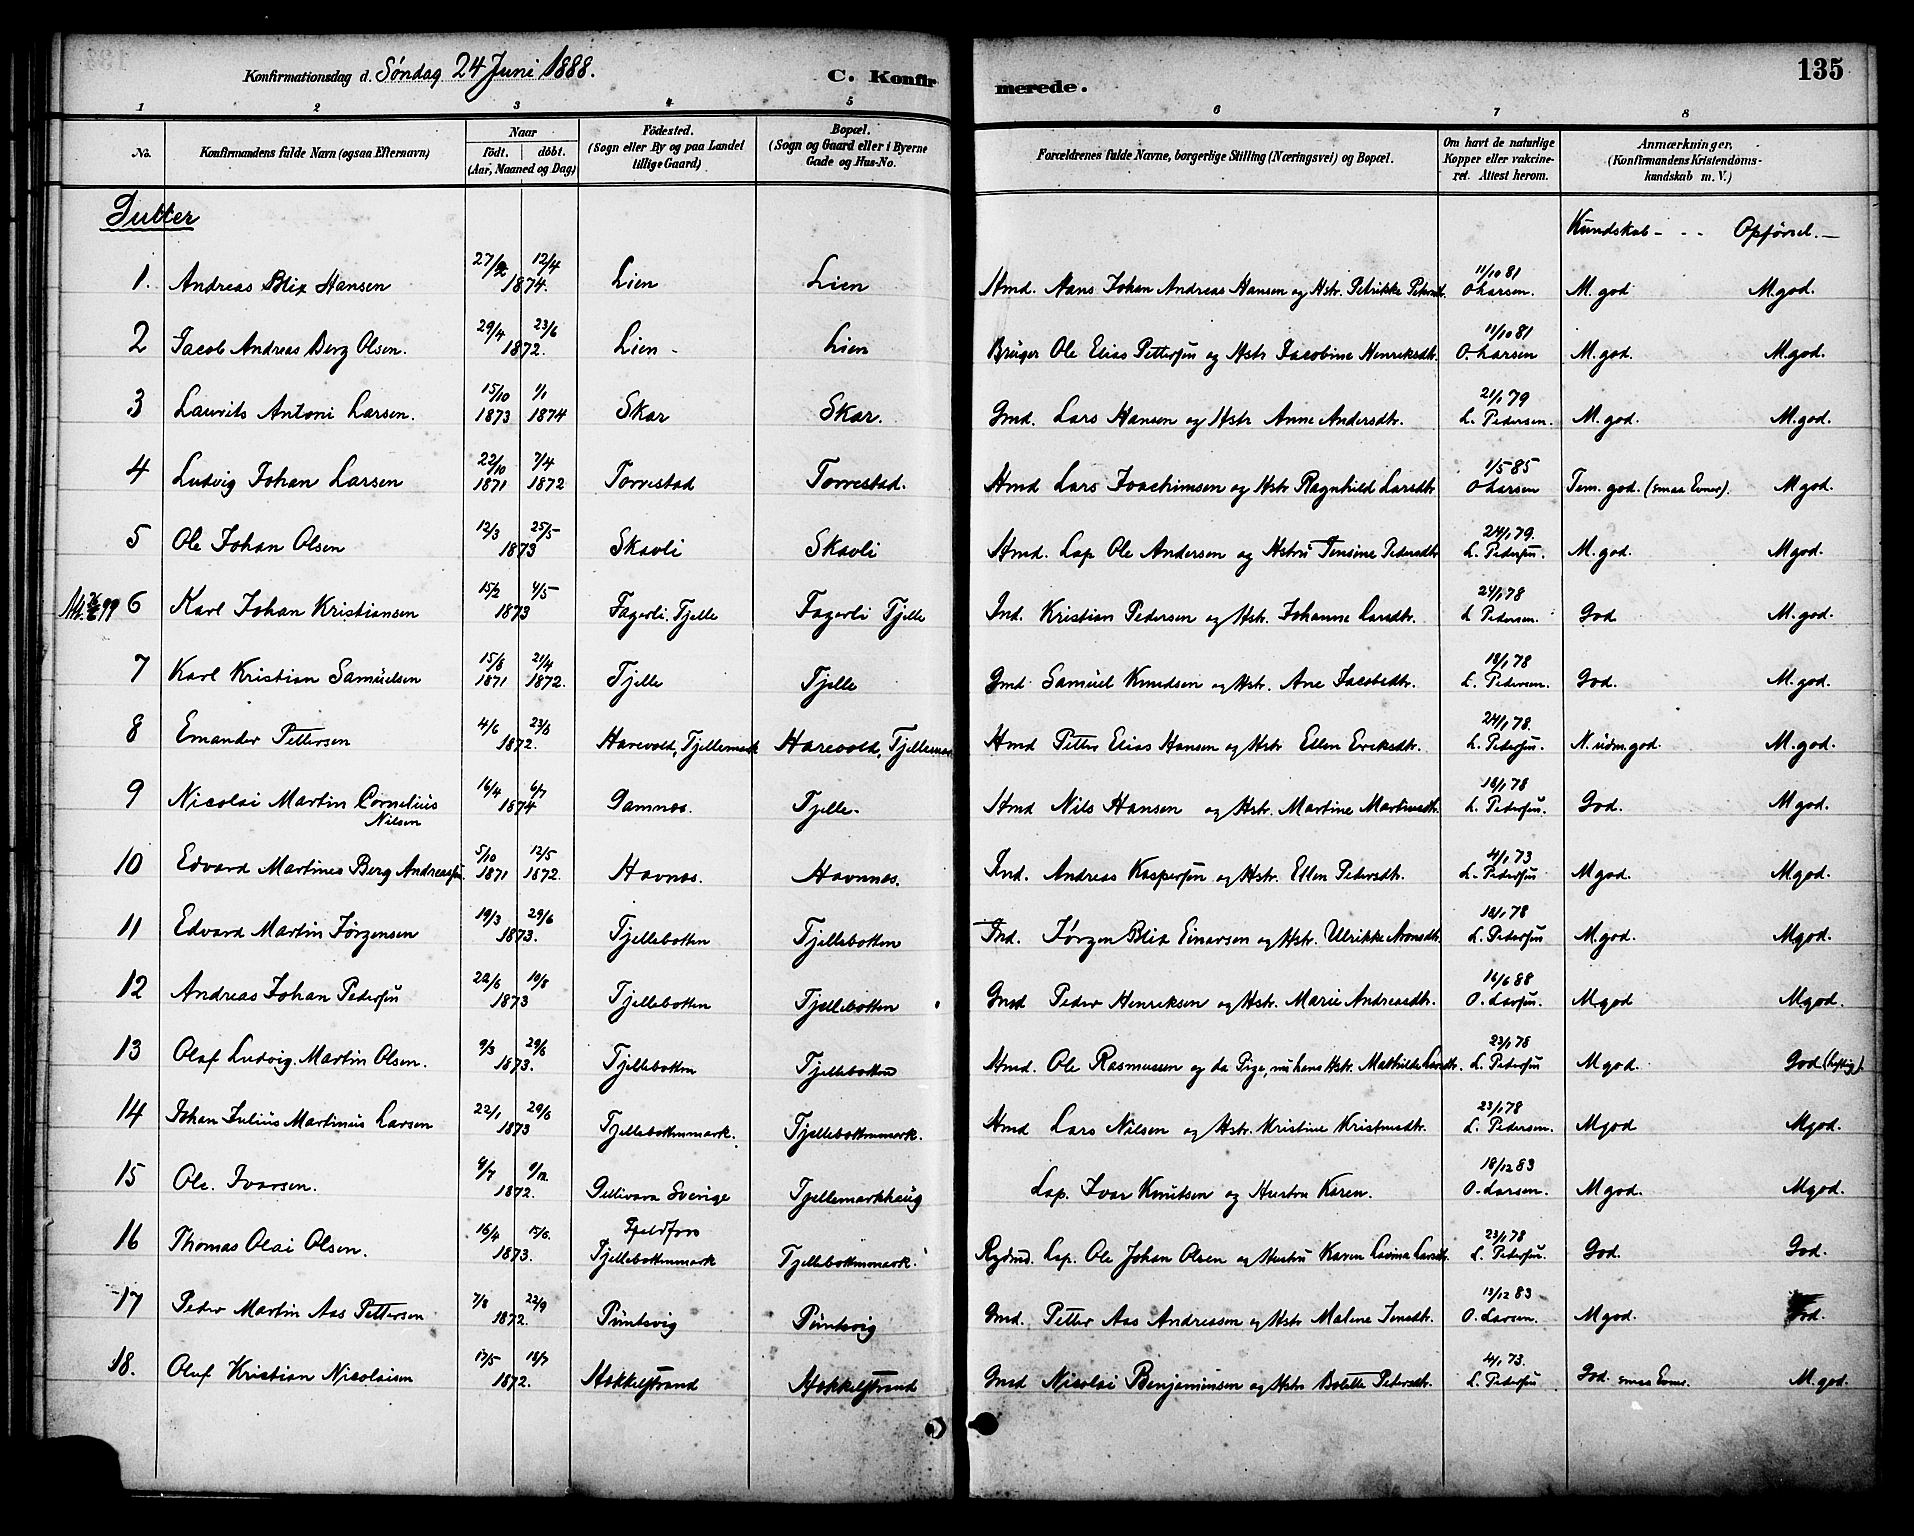 Konfirmationsdag d. Søndag 24 Juni 1888.
C. Konfirmerede.
135
1 2 3 4 5 6 7 8
No. Konfirmandens fulde Navn (ogsaa Efternavn) Naar födt. döbt. (Aar, Maaned og Dag) Födested. (Sogn eller By og paa Landet tillige Gaard) Bopæl. (Sogn og Gaard eller i Byerne Gade og Hus-No. Forældrenes fulde Navne, borgerlige Stilling (Næringsvei) og Bopæl. Om havt de naturlige Kopper eller vakcineret. Attest herom. Anmærkninger, (Konfirmandens Kristendomskundskab m. V.)
Gutter Kundskab - - - Opførsel. -
1. Andreas Blix Hansen 27/2 12/4 1874. Lien Lien Hmd. Hans Johan Andreas Hansen og Hstr. Petrikke Petersdt. 11/10 81 O Larsen. M. god M.god.
2 Jacob Andreas Berg Olsen. 29/4 23/6 1872. Lien - Lien Bruger Ole Elias Pettersen og Hstr Jacobine Henriksdtr. 11/10 81 O. Larsen M. god. M.god.
3 Laurits Antoni Larsen. 15/10 1873 1/1 1874 Skar Skar. Gmd. Lars Hansen og Hstr Anne Andersdtr. 21/1 79 L. Pedersen. M. god. M. god.
4 Ludvig Johan Larsen 22/10 1871 7/4 1872 Torrestad Torrestad. Hmd Lars Joachimsen og Hstr Ragnhild Larsdtr 1/5 85 O Larsen Tem. god. (smaa Evner). M god.
5 Ole Johan Olsen 12/3 25/5 1873 Skavli Skavli Hmd. Lap Ole Andersen og Hstru Jensine Pedersdtr 24/1 79. L. Pedersen. M. god. M god.
6 Karl Johan Kristiansen 15/2 4/5 1873 Fagerli. Tjelle Fagerli Tjelle Ind. Kristian Pedersen og Hstr. Johanne Larsdtr. 24/1 78 L Pedersen. God M. god.
7 Karl Kristian Samuelsen 15/8 1871 21/4 1872. Tjelle Tjelle Gmd Samuel Knudsen og Hstr. Ane Jacobsdtr. 18/1 78 L. Pedersen. God. M. god.
8 Emander Pettersen 4/6 23/8 1872. Harevold, Tjellemark Harevold, Tjellemark Hmd Petter Elias Hansen og Hstr Ellen Eriksdtr. 24/1 78. L. Pedersen. N. udm. god. M. god.
9 Nicolai Martin Cornelius Nilsen 16/4 6/7 1874 Gamnæs. Tjelle. Hmd Nils Hansen og Hstr. Martine Martinsdtr. 18/1 78 L. Pedersen. God. M god.
10 Edvard Martines Berg Andreasen. 5/10 1871 12/5 1872. Havnæs. Havnnæs. Ind. Andreas Kaspersen og Hstr. Ellen Pedersdtr. 4/1 73 L. Pedersen M god. M god.
11 Edvard Martin Jørgensen 19/3 29/6 1873. Tjellebotten Tjellebotten Ind. Jørgen Blix Einarsen og Hstr. Ulrikke Aronsdtr. 18/1 78 L. Pedersen M. god. M god.
12 Andreas Johan Pedersen 22/6 10/8 1873 Tjellebotten Tjellebotten Gmd Peder Henriksen og Hstr. Marie Andreasdtr. 16/6 88 O. Larsen. M god M god.
13 Olaf Ludvig. Martin Olsen. 9/3 29/6 1873. Tjellebotten Tjellebotten Hmd. Ole Rasmussen og da Pige, nu hans Hstr. Mathilde Larsdtr. 23/1 78 L. Pedersen M god. God (heftig).
14 Johan Julius Martinus Larsen 22/1 29/6 1873 Tjellebottenmark. Tjellebottenmark. Hmd Lars Nilsen og Hstr. Kristine Kristensdtr. 23/1 78 L. Pedersen. M god M god.
15 Ole. Ivarsen. 1872. Gellivara Sverige Tjellemarkhaug Lap. Ivar Knutsen og Hustru Karen. 18/12 83 O. Larsen. M god. M god.
16 Thomas Olai Olsen. 16/4 15/6. 1873. Tjellebottenmark Tjellebottenmark. Rydmd. Lap. Ole Johan Olsen og Hustru Karen Lavina Larsdtr. 23/1 78 L. Pedersen. God. God.
17 Peder Martin Aas Pettersen 7/8 22/9 1872. Puntsvig Puntsvig Gmd. Petter Aas Andreasen og Hstr Malene Jensdtr. 13/12 83 O. Larsen. M god. God.
18. Oluf Kristian Nicolaisen 17/5 18/7 1872. Stokkelstrand Stokkelstrand Gmd Nicolai Benjaminsen og Hstr Bolette Petersdtr. 4/1 73. L. Pedersen God. smaa Evner. M. god.